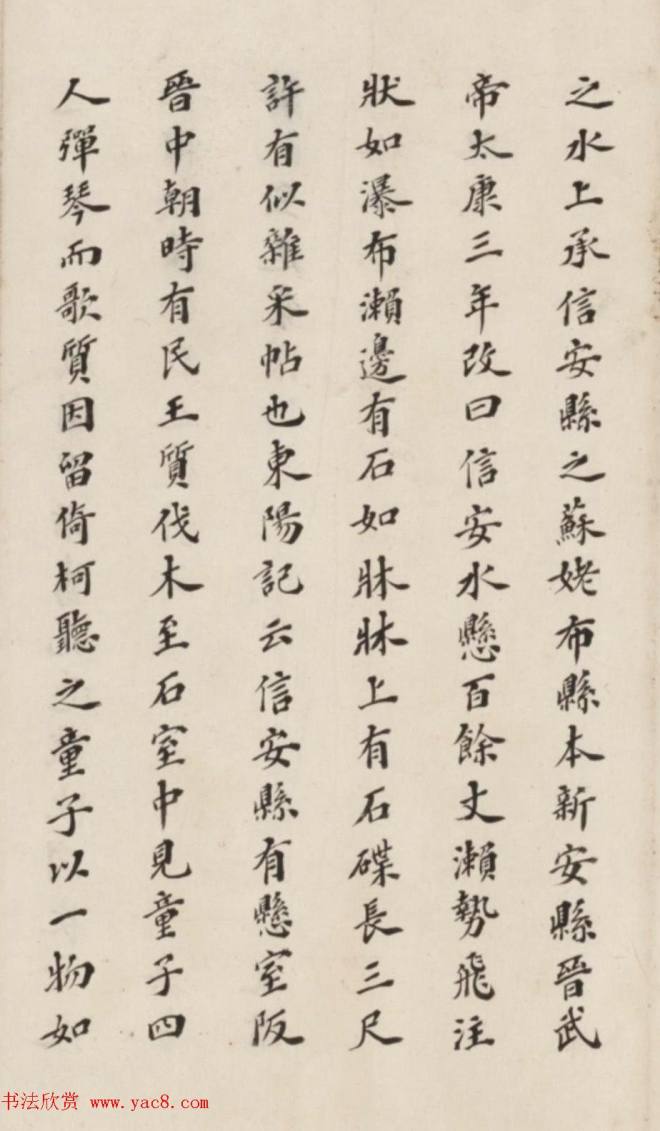 之水上承信安縣之蘇姥布縣本新安縣晉武
帝太康三年改曰信安水懸百餘丈瀨勢飛注
狀如瀑布瀨邊有石如牀牀上有石碟長三尺
許有似雜采帖也東陽記云信安縣有懸室阪
晉中朝時有民王質伐木至石室中見童子四
人彈琴而歌質因留倚柯聽之童子以一物如
书法欣赏 www.yac8.com